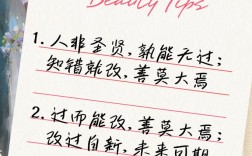 Beauty Tips
1. 人非圣贤，孰能无过；
知错就改，善莫大焉
2. 过而能改，善莫大焉；
改过自新，未来可期